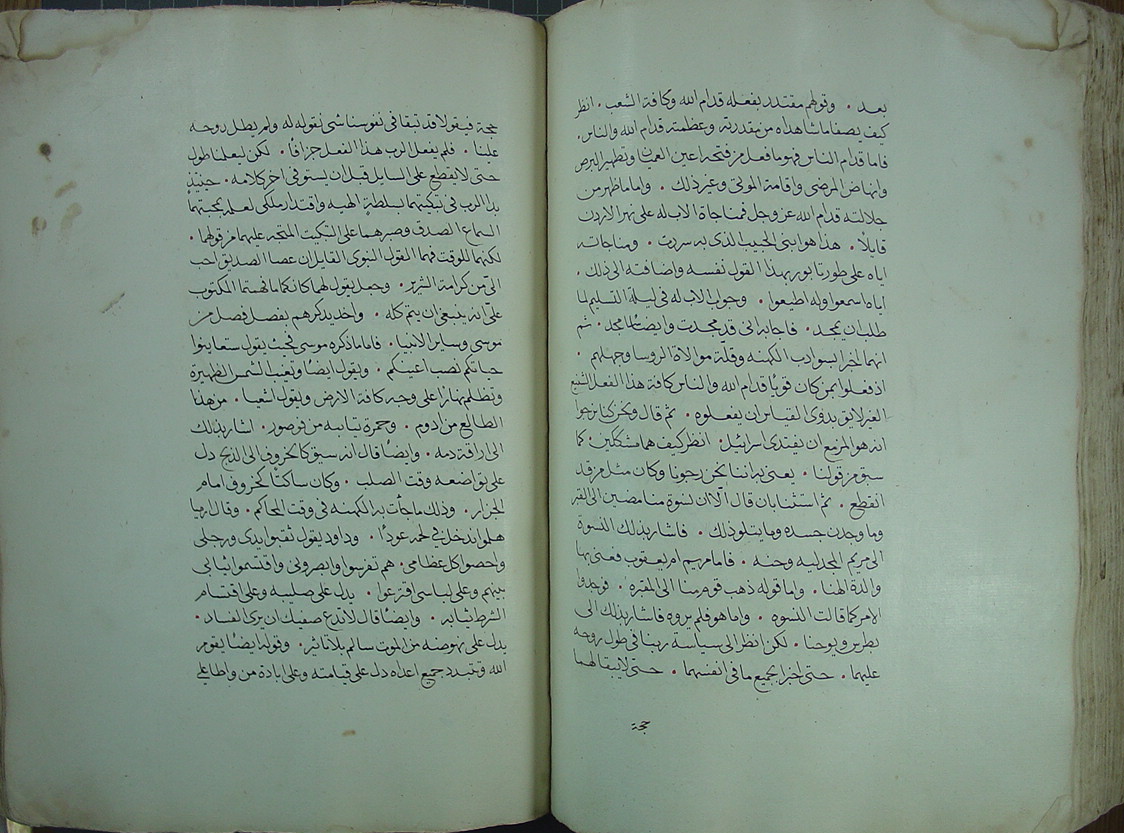 بعد . وقولهم مقتدر بفعله قدام الله وكافة الشعب . انظر
كيف يصفا ماشاهداه من مقدرته وعظمته قدام الله والناس .
فاما قدام الناس فهو ما فعل من فتحه اعين العميان وتطهير البرص
وانهاض المرضى واقامة الموتى وغير ذلك . واما ما ظهر من
جلالته قدام الله عز وجل فمناجاة الاب له على نهر الاردن
قايلاً . هذا هو ابني الحبيب الذي به سررت . ومناجاته
اياه على طور تابور بهذا القول نفسه واضافته الى ذلك .
اياه اسمعوا وله اطيعوا . وجواب الاب له في ليلة التسليم لما
طلب ان يمجد . فاجابه اني قد مجدت وايضاً امجد . ثم
انهما اخبرا بسو ادب الكهنه وقلة موالاة الروسا وجهلهم .
اذ فعلوا بمن كان قوياً قدام الله والناس كافة هذا الفعل الشنيع
الغير لايق بذوي القياس ان يفعلوه . ثم قال ونحن كنا نرجوا
انه هو المزمع ان يفتدي اسراييل . انظر كيف هما متشككين . كما
سبق من قولنا . يعني به اننا نحن رجونا وكان مثل من قد
انقطع . ثم استثنا بان قال الا ان نسوة منا مضين الى القبر
وما وجدن جسده وما يتلو ذلك . فاشار بذلك النسوة
الى مريم المجدليه وحنه . فاما مريم ام يعقوب فعنى بها
والدة الهنا . واما قوله ذهب قوم منا الى المقبره . فوجدوا
الامر كما قالت النسوه . واما هو فلم يروه فاشار بذلك الى
بطرس ويوحنا . لكن انظر الى سياسة ربنا في طول روحه
عليهما . حتى اخبرا بجميع ما في انفسهما . حتى لا يبقا لهما
حجة
حجة فيقولا قد تبقا في نفوسنا شي نقوله له ولم يطل روحه
علينا . فلم يفعل الرب هذا الفعل جزافاً . لكن ليعلمنا طول
حتى لا يقطع على السايل قبل ان يستوفي اخر كلامه . حينيذ
بدا الرب في تبكيتهما بسلطة الهيه واقتدار ملكي لعلمه بمحبتهما
السماع الصدق وصبرهما على التبكيت المتجه عليهما من قولهما .
لكنهما للوقت فهما القول النبوي القايل ان عصا الصديق احب
الي من كرامة الشرير . وجعل يقول لهما كانكما ما فهمتما المكتوب
علي انه ينبغي ان يتم كله . واخد يدكرهم بفصل فصل من
موسى وساير الانبيا . فاما ما ذكره موسى فحيث يقول ستعاينوا
حياتكم نصب اعينكم . ويقول ايضاً وتغيب الشمس الظهيرة
وتظلم نهاراً على وجه كافة الارض ويقول اشعيا . من هذا
الطالع من ادوم . وحمرة تيابه من نوصور . اشار بذلك
الى اراقة دمه . وايضاً قال انه سيق كالخروف الى الذبح دل
على تواضعه وقت الصلب . وكان ساكتاً كخروف امام
الجزار . وذلك ما جات به الكهنه في وقت المحاكم . وقال ارميا
هلموا ندخل في لحمه عوداً . وداود يقول ثقبوا يدي ورجلي
واحصوا كل عظامي . هم تفرسوا وابصروني واقتسموا ثيابي
بينهم وعلى لباسي اقترعوا . يدل على صلبه وعلى اقتسام
الشرط ثيابه . وايضاً قال لا تدع صفيك ان يرى الفساد .
يدل على نهوضه من الموت سالم بلا تاثير . وقوله ايضاً يقوم
الله وتتبدد جميع اعداه دل على قيامته وعلى ابادة من واطا على